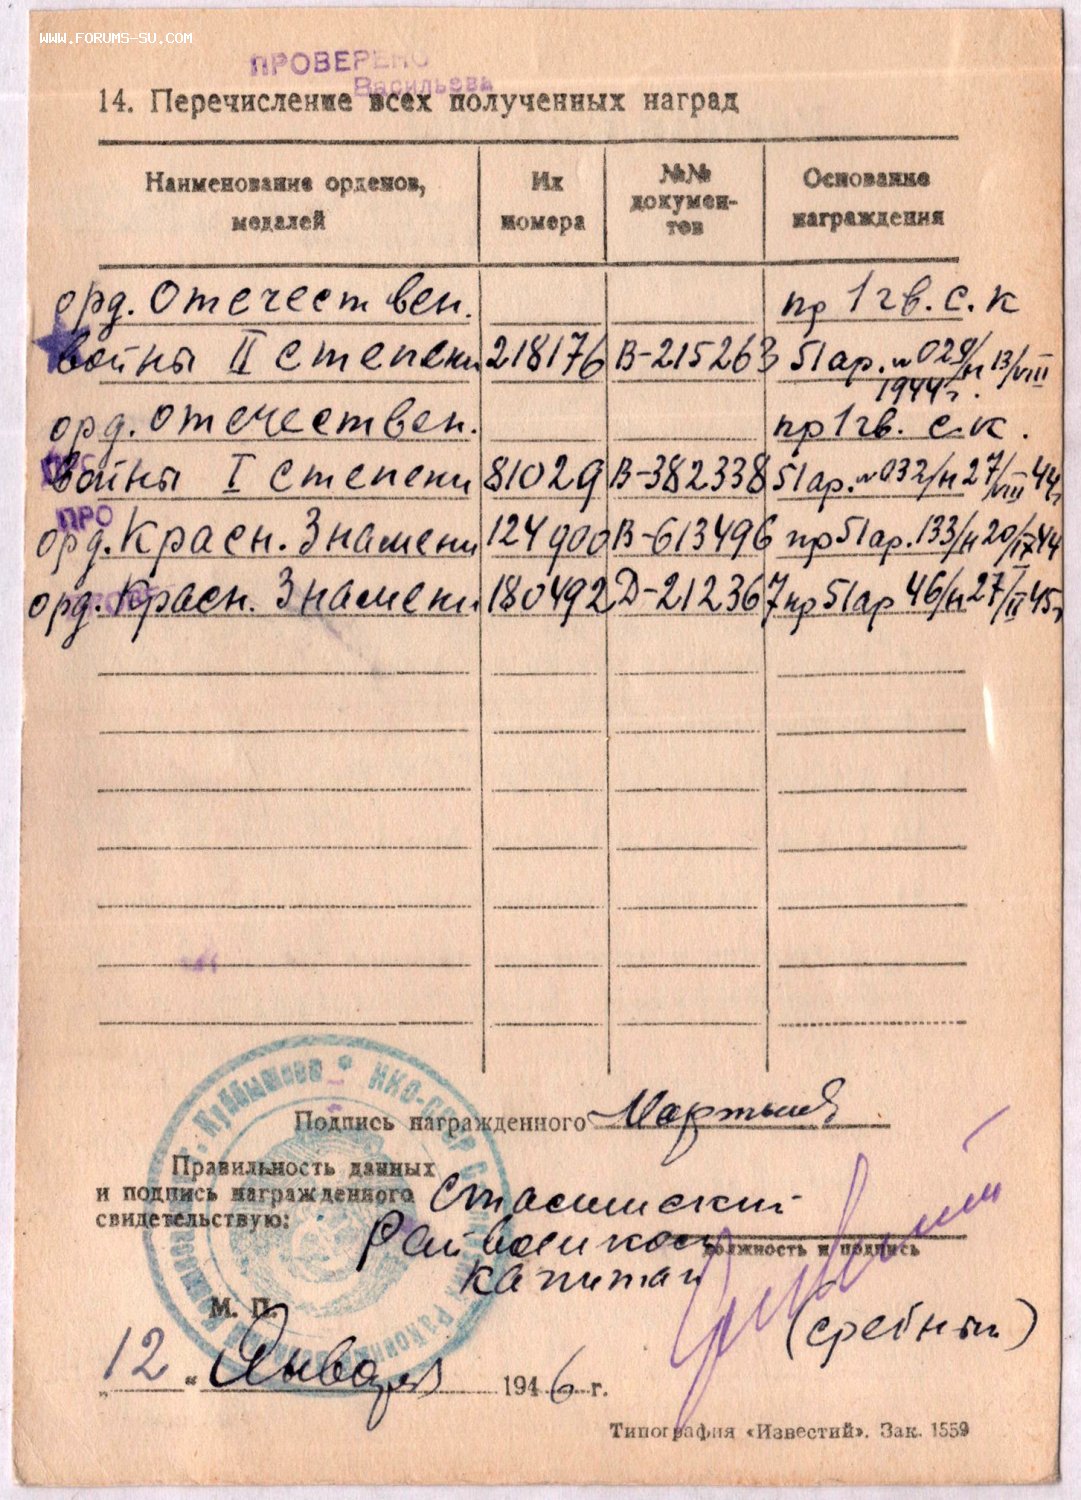 WWW.FORUMS-SU.COM
ПРОВЕРЕНО
Васильева
14. Перечисление всех полученных наград
Наименование орденов, медалей
Их номера
№№ докумен-тов
Основание награждения
орд. Отечествен. пр 1 гв. с. к
войны II степени 218176 В-215263 51 ар. № 029/н 13/VIII
1944 г.
орд. Отечествен. пр 1 гв. с. к.
войны I степени 81029 В-382338 51 ар. № 032/н 27/VIII 44 г
орд. Красн. Знамени 124900 В-613496 пр 51 ар. 133/н 20/IX 44
орд. Красн. Знамени 180492 Д-212367 пр 51 ар 46/н 27/II 45 г
ПРО
Подпись награжденного
Правильность данных
и подпись награжденного
свидетельствую:
Райвоенком
капитан
должность и подпись
М. П.
„12“ Января 1946 г.
Типография «Известий». Зак. 1559